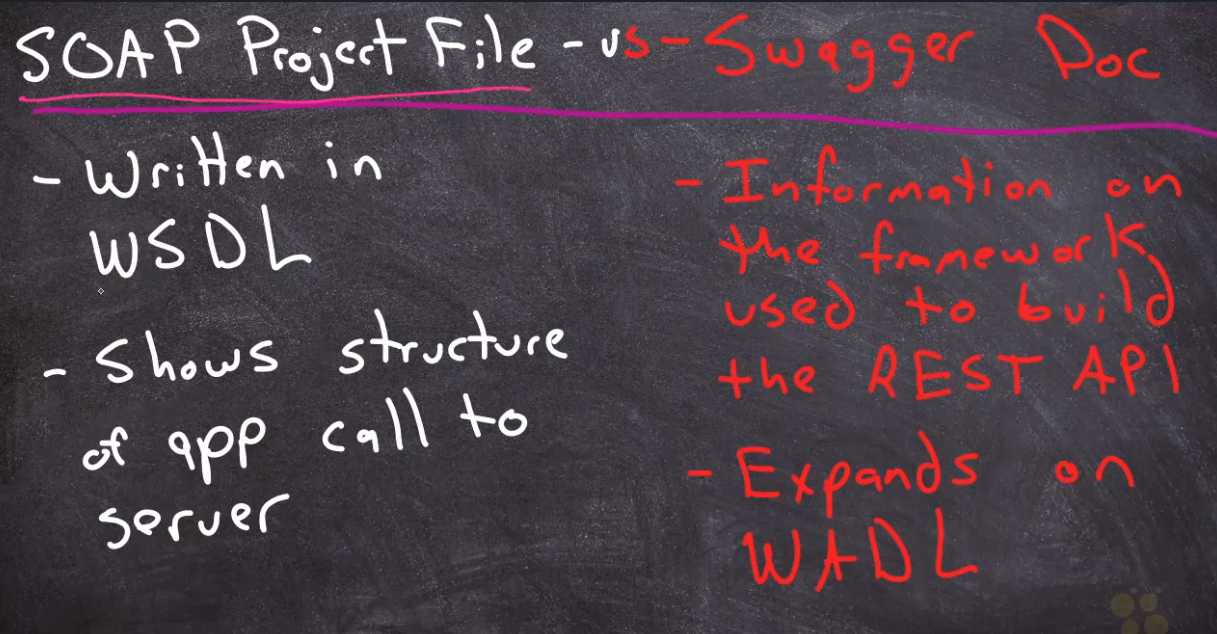 SOAP Project File - vs - Swagger Doc
- Written in
WSDL
- Shows structure
of app call to
server
- Information on
the framework
used to build
the REST API
- Expands on
WADL